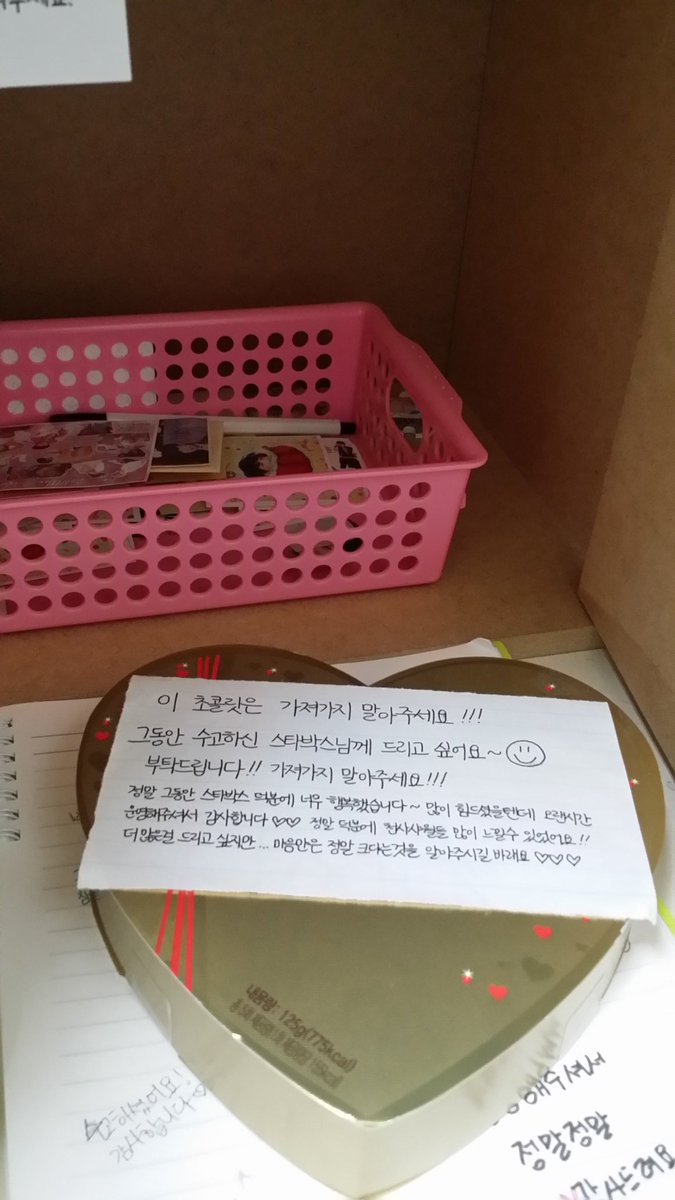 이 초콜릿은 가져가지 말아주세요!!!
그동안 수고하신 스타박스님께 드리고 싶어요~
부탁드립니다!! 가져가지 말아주세요!!!
정말 그동안 스타박스 덕분에 너무 행복했습니다~ 많이 힘드셨을텐데 오랜시간
운영해주셔서 감사합니다♡♡ 정말 덕분에 천사사월들 많이 느낄수 있었어요!!
더 많은걸 드리고 싶지만... 마음만은 정말 크다는것을 알아주시길 바래요♡♡♡
내용량: 125g(775kcal)
감사합니다
해주셔서
정말정말